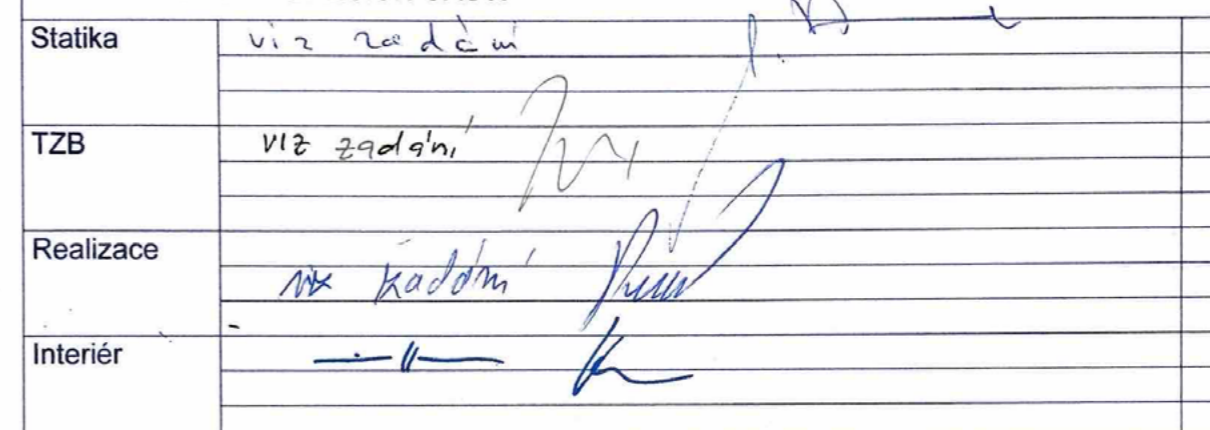 Statika viz zadání
TZB viz zadání
Realizace viz zadání
Interiér —〃—